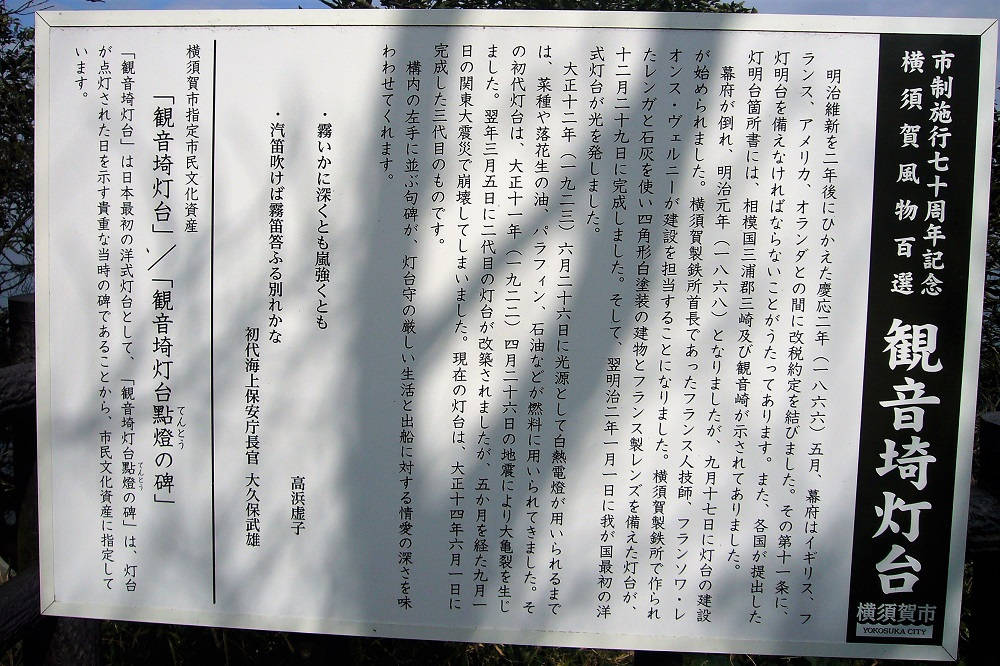 市制施行七十周年記念
横須賀風物百選
観音埼灯台
横須賀市
YOKOSUKA CITY
明治維新を二年後にひかえた慶応二年（一八六六）五月、幕府はイギリス、フ
ランス、アメリカ、オランダとの間に改税約定を結びました。その第十一条に、
灯明台を備えなければならないことがうたってあります。また、各国が提出した
灯明台箇所書には、相模国三浦郡三崎及び観音崎が示されてありました。
幕府が倒れ、明治元年（一八六八）となりましたが、九月十七日に灯台の建設
が始められました。横須賀製鉄所首長であったフランス人技師、フランソワ・レ
オンス・ヴェルニーが建設を担当することになりました。横須賀製鉄所で作られ
たレンガと石灰を使い四角形白塗装の建物とフランス製レンズを備えた灯台が、
十二月二十九日に完成しました。そして、翌明治二年一月一日に我が国最初の洋
式灯台が光を発しました。
大正十二年（一九二三）六月二十六日に光源として白熱電燈が用いられるまで
は、菜種や落花生の油、パラフィン、石油などが燃料に用いられてきました。そ
の初代灯台は、大正十一年（一九二二）四月二十六日の地震により大亀裂を生じ
ました。翌年三月五日に二代目の灯台が改築されましたが、五か月を経た九月一
日の関東大震災で崩壊してしまいました。現在の灯台は、大正十四年六月一日に
完成した三代目のものです。
構内の左手に並ぶ句碑が、灯台守の厳しい生活と出船に対する情愛の深さを味
わわせてくれます。
・霧いかに深くとも嵐強くとも
高浜虚子
・汽笛吹けば霧笛答ふる別れかな
初代海上保安庁長官 大久保武雄
横須賀市指定市民文化資産
「観音埼灯台」／「観音埼灯台點燈の碑」
てんとう
「観音埼灯台」は日本最初の洋式灯台として、「観音埼灯台點燈の碑」は、灯台
てんとう
が点灯された日を示す貴重な当時の碑であることから、市民文化資産に指定して
います。